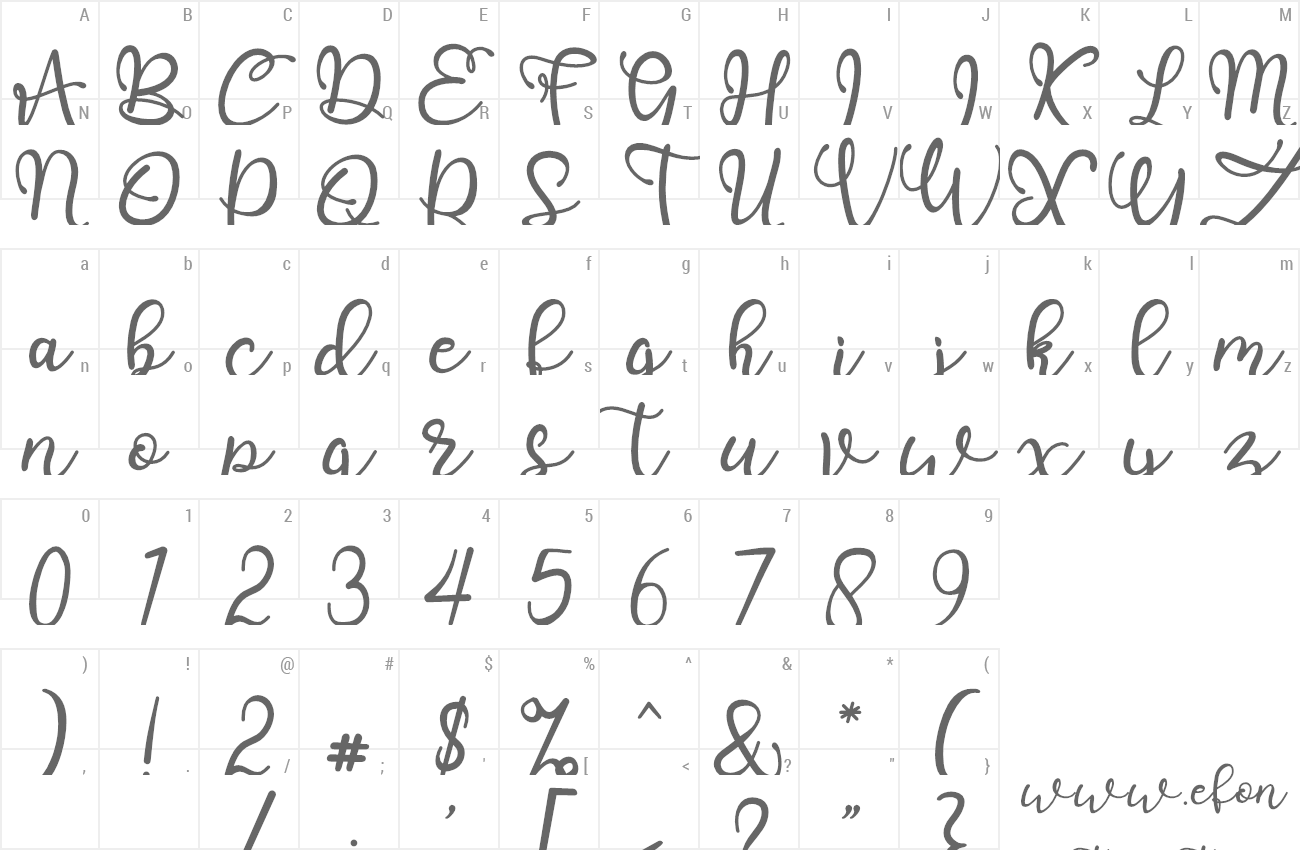 A B C D E F G H I J K L M
A B C D E F G H I J K L M
N O P Q R S T U V W X Y Z
N O P Q R S T U V W X Y Z
a b c d e f g h i j k l m
a b c d e f g h i j k l m
n o p q r s t u v w x y z
n o p q r s t u v w x y z
0 1 2 3 4 5 6 7 8 9
0 1 2 3 4 5 6 7 8 9
) ! @ # $ % ^ & * (
) ! 2 # $ % ^ & * (
, . / ; ' [ < ? " }
/ ; ' [ < ? " }
www.efon